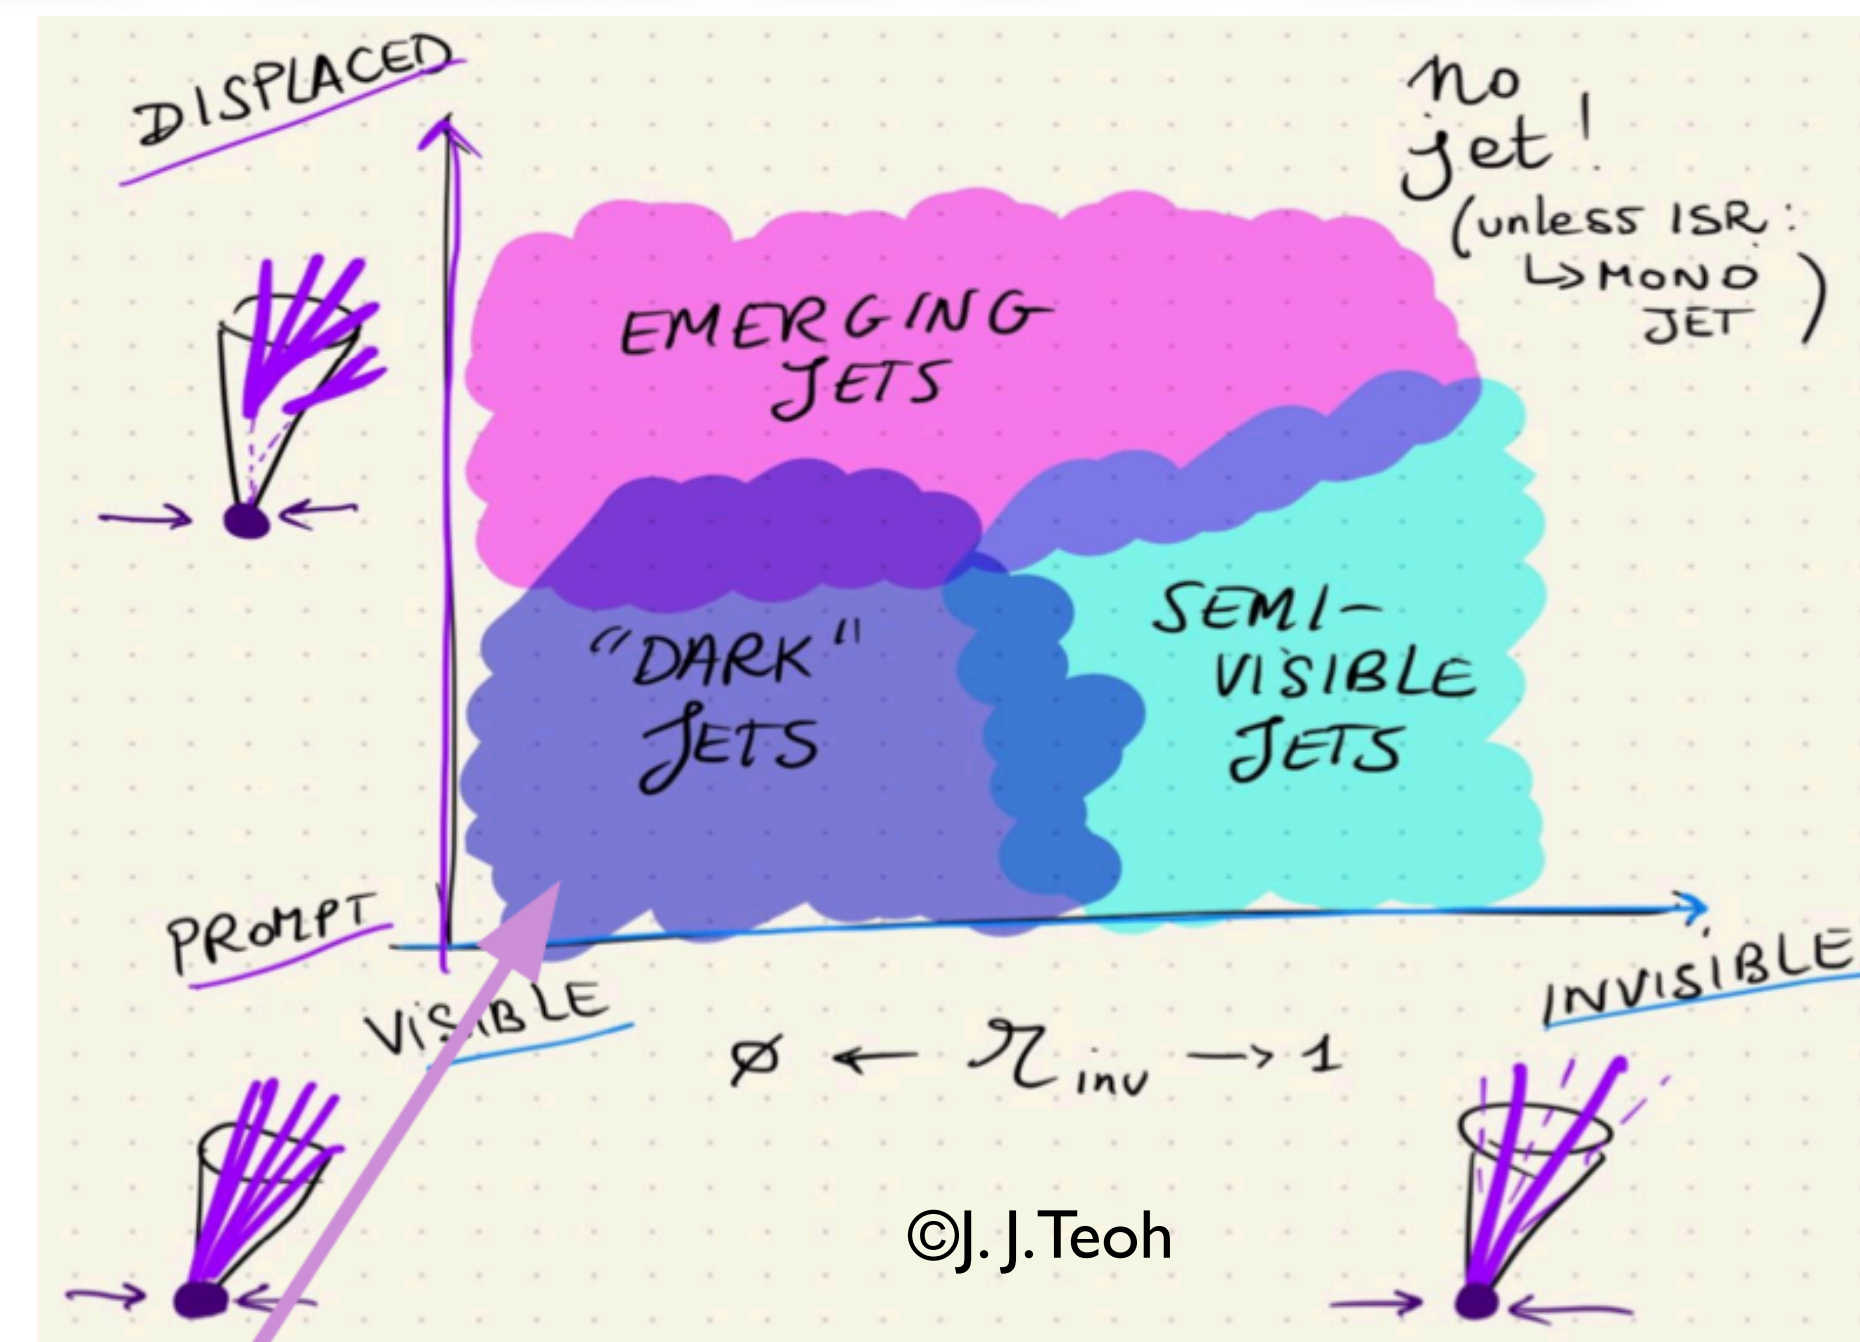 DISPLACED
no
jet!
(unless ISR:
↳ MONO
JET)
EMERGING
JETS
"DARK"
JETS
SEMI-
VISIBLE
JETS
PROMPT
VISIBLE
INVISIBLE
Ø ← rinv → 1
©J. J. Teoh